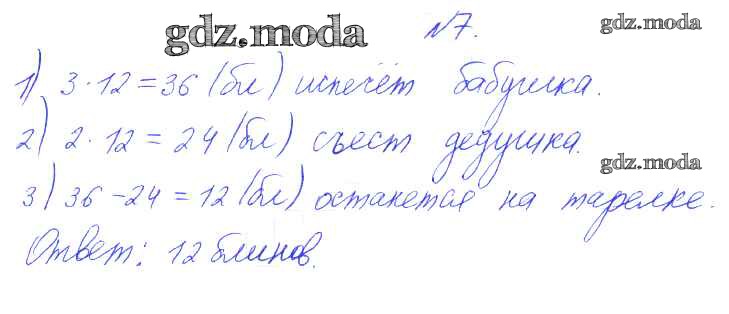 gdz.moda №7. gdz.moda
1) 3·12=36 (бл) испечёт бабушка.
2) 2·12=24 (бл) съест дедушка.
gdz.moda
3) 36-24=12 (бл) останется на тарелке.
Ответ: 12 блинов.